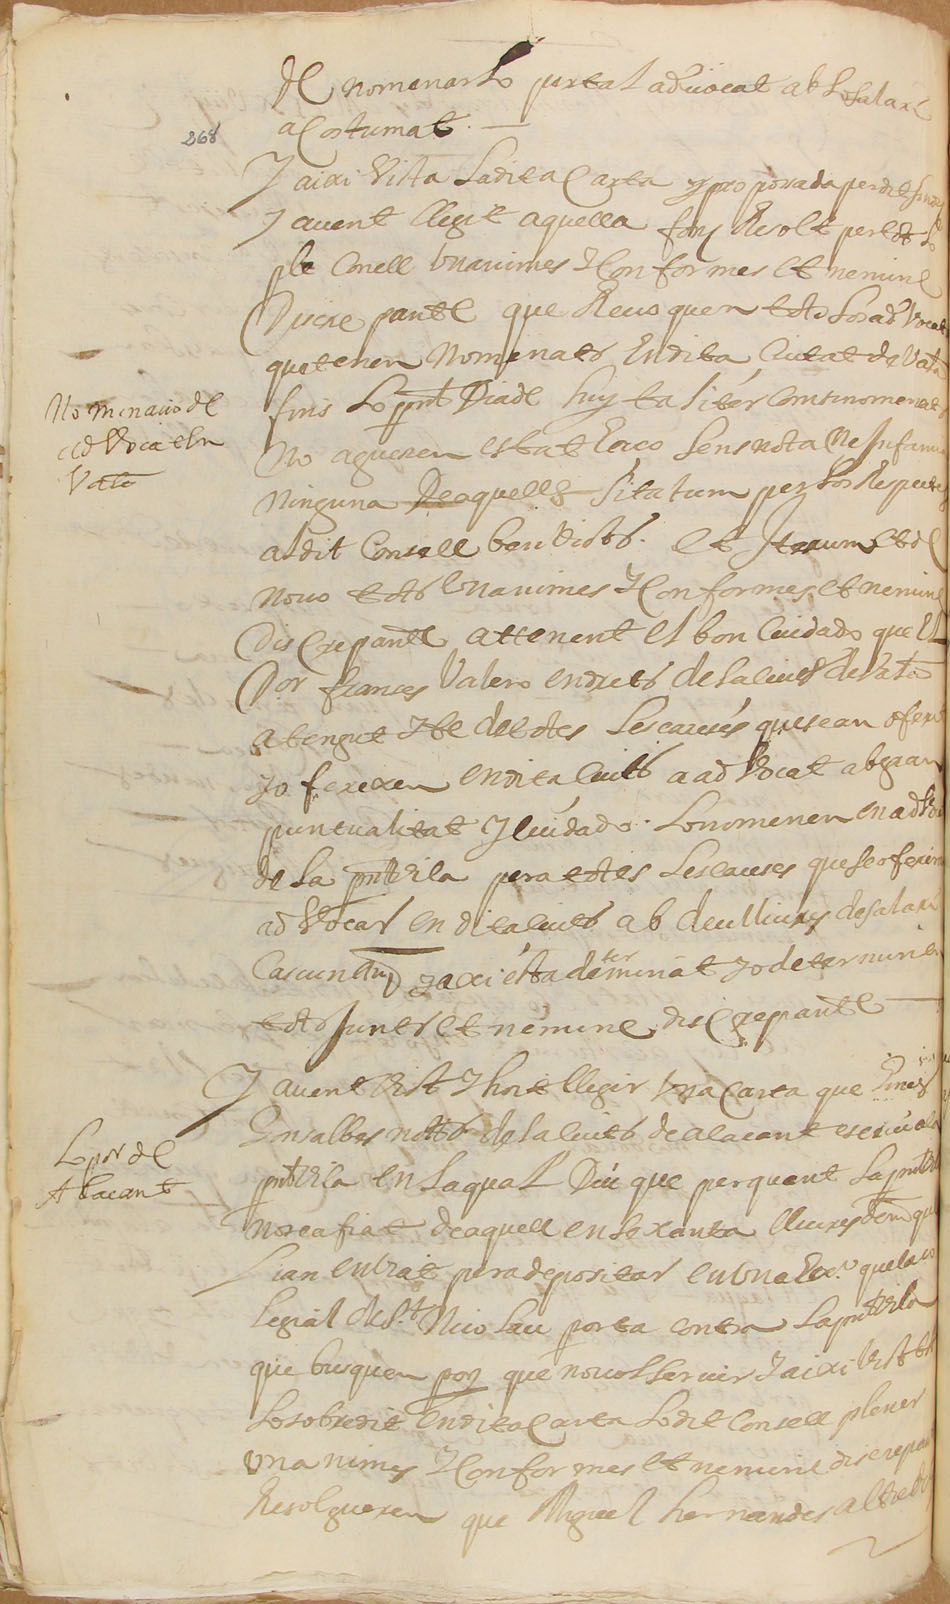 de nomenarlo per tal aduocat ab lo salari
acostumat.
268
Y aixi vista la dita Carta y proposada per dit
y auent llegit aquella fonch Resolt per tot lo
ple Conell vnanimes y Conformes et nemine
Discrepante que Reuoquen tots los aduocats
que tenen nomenats En dita Ciutat de Vala
fins lo pnt Dia de huy taliter com si nomenats
no agueren estat Eaco sens nota ne Infamia
ninguna De aquells sitatum per los Respectes
al dit Consell ben vists. et Iterum et de
nouo tots vnanimes y Conformes et nemine
Discrepante attenent el bon Cuidado que El
Dor frances Valero en drets de la ciutt de Vala
a tengut y te de totes les causes que se an ofert
y o ferexen en dita Ciutt a aduocat ab gran
puntualitat y Cuidado. Lo nomenen en aduocat
de la pnt vila pera totes les causes que se oferiran
aduocar en dita ciutt ab deu lliures de salari
Cascun Any y axi esta determinat y o determinen
tots Junts et nemine discrepante
Nominacio de
aduocat en
Vala
Y auent vist y hoit llegir vna Carta que Gines
Gonsalbes notto de la Ciutt de alacant escriu a la
pnt vila en la qual Diu que per quant la pnt vila
nos ea fiat de aquell en sexanta lliures que
li an entrat pera depositar en vna Exo que la co
legial de St Nicolau porta contra la pnt vila
que busquen por que no vol seruir y aixi vist tot
lo sobredit en dita Carta lo dit Consell plener
vnanimes y Conformes et nemine discrepante
Resolgueren que Miguel hernandes altre de
Lo por de
Alacant